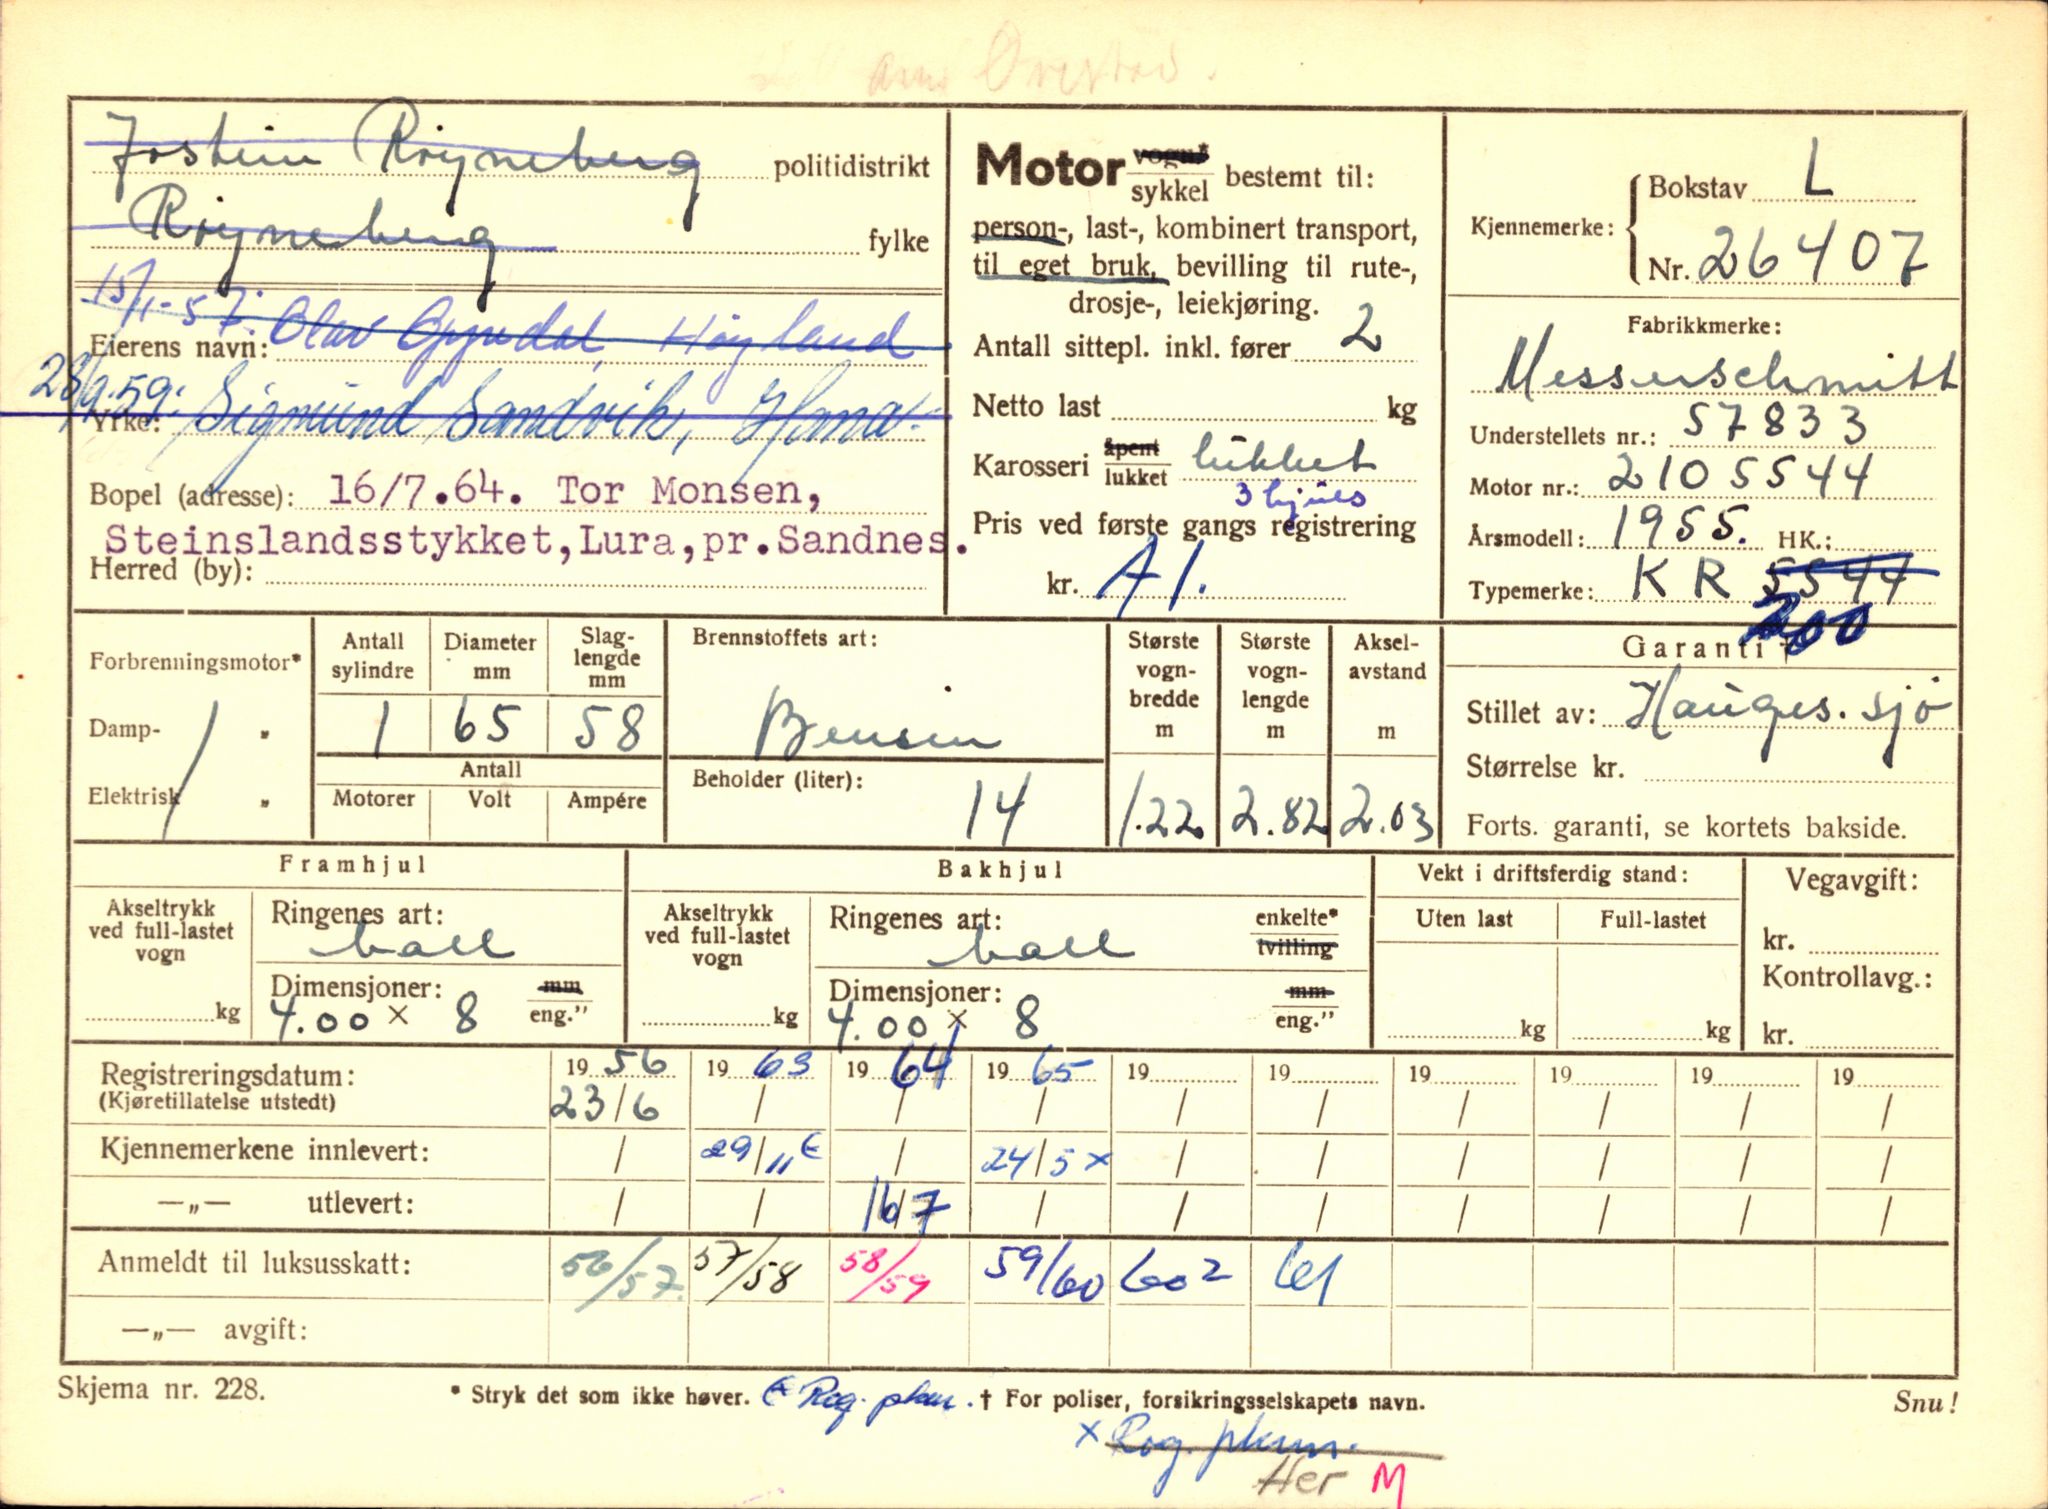 Jostein Röyneberg politidistrikt
Röyneberg fylke
15/1-57: Olav Gyndal, Höyland
Eierens navn:
23/9.59: Sigmund Sandvik, Hana.
Yrke:
Bopel (adresse): 16/7.64. Tor Monsen,
Steinslandsstykket, Lura, pr. Sandnes.
Herred (by):
Motor vogn* sykkel bestemt til:
person-, last-, kombinert transport,
til eget bruk, bevilling til rute-,
drosje-, leiekjøring.
Antall sittepl. inkl. fører 2
Netto last kg
Karosseri åpent lukket lukket
3 hjuls
Pris ved første gangs registrering
kr. A/.
Kjennemerke: Bokstav L
Nr. 26407
Fabrikkmerke:
Messerschmitt
Understellets nr.: 57833
Motor nr.: 2105544
Årsmodell: 1955. HK.:
Typemerke: KR 5544
200
Forbrenningsmotor*
Damp- "
Elektrisk "
Antall sylindre
Diameter mm
Slaglengde mm
1 65 58
Antall
Motorer Volt Ampére
Brennstoffets art:
Bensin
Beholder (liter):
14
Største vogn-bredde m
1.22
Største vogn-lengde m
2.82
Aksel-avstand m
2.03
Garanti †
Stillet av: Hauges. sjø
Størrelse kr.
Forts. garanti, se kortets bakside.
Framhjul
Akseltrykk ved full-lastet vogn
kg
Ringenes art:
ball
Dimensjoner: mm eng."
4.00 x 8
Bakhjul
Akseltrykk ved full-lastet vogn
kg
Ringenes art: enkelte* tvilling
ball
Dimensjoner: mm eng."
4.00 x 8
Vekt i driftsferdig stand:
Uten last Full-lastet
kg kg
Vegavgift:
kr.
Kontrollavg.:
kr.
Registreringsdatum: 19 56 19 63 19 64 19 65 19 19 19 19 19 19
(Kjøretillatelse utstedt) 23/6 / / / / / / / / /
Kjennemerkene innlevert: / 29/11 € / 24/5 x / / / / / /
—„— utlevert: / / 16/7 / / / / / / /
Anmeldt til luksusskatt: 56/57. 57/58 58/59 59/60 60 2 61
—„— avgift:
Skjema nr. 228.
* Stryk det som ikke høver. € Rog. pkm. † For poliser, forsikringsselskapets navn.
Snu!
x Rog. pkm.
Her M